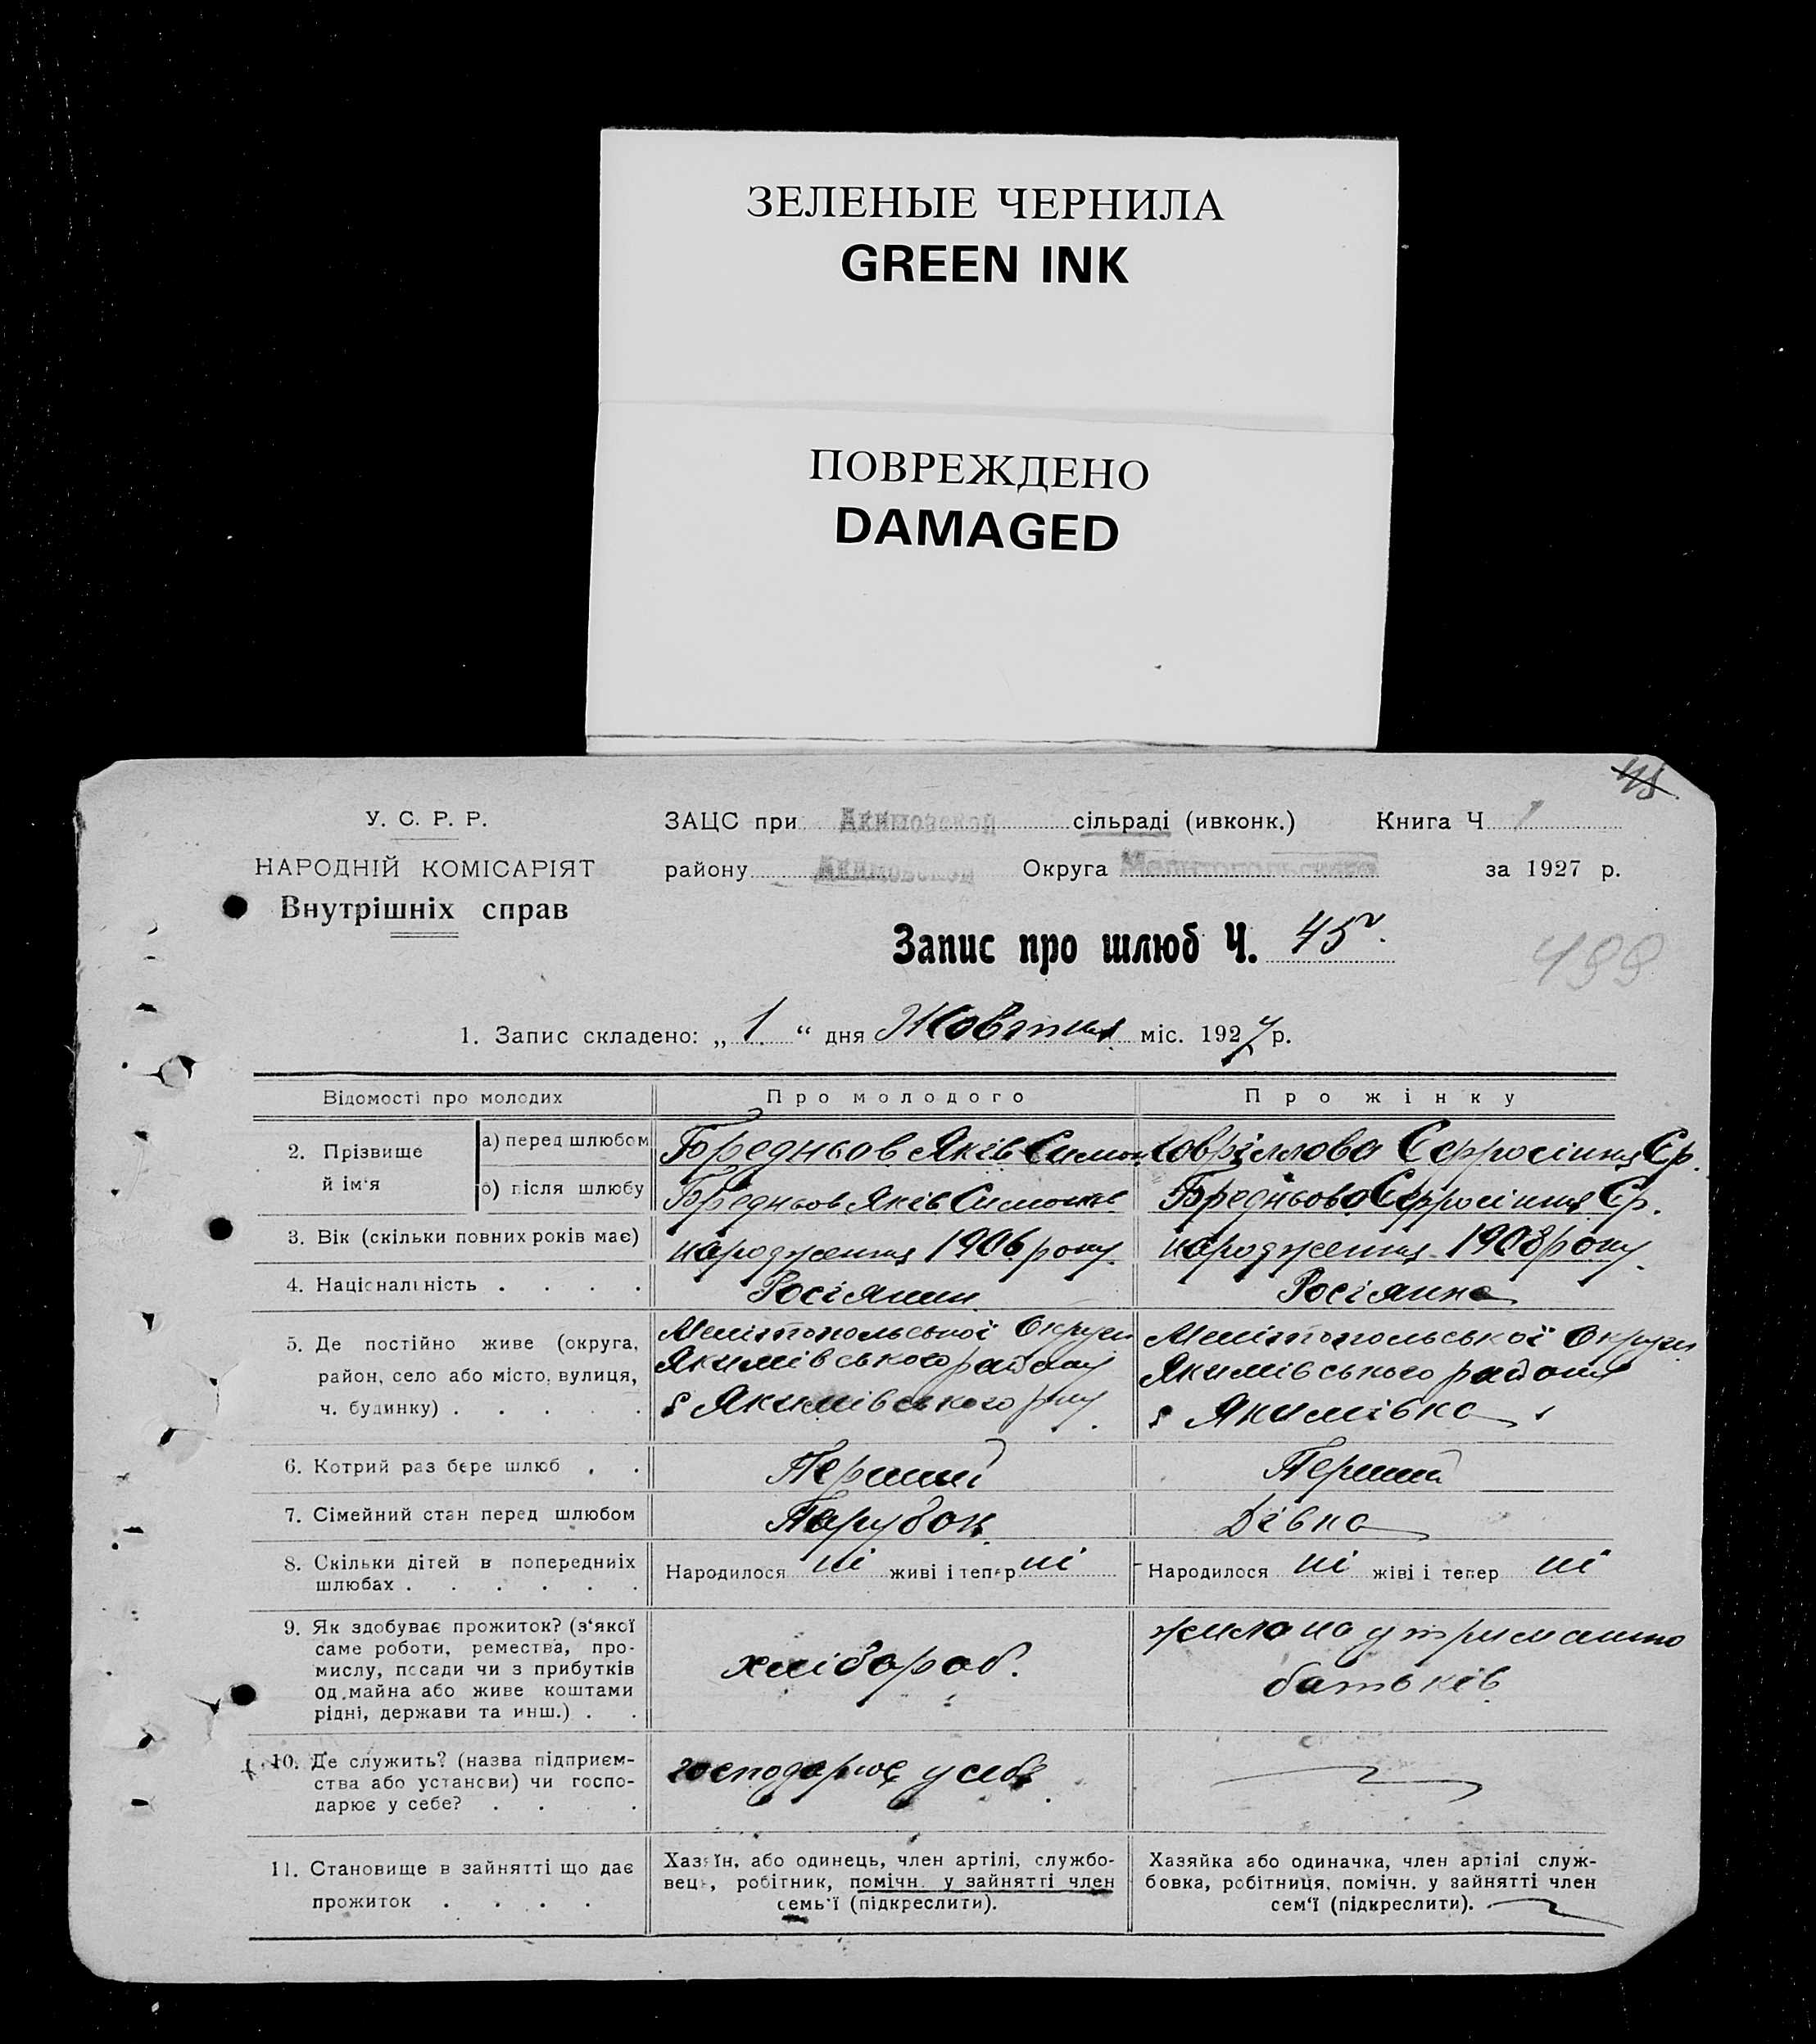 ЗЕЛЕНЫЕ ЧЕРНИЛА
GREEN INK
ПОВРЕЖДЕНО
DAMAGED
45
У. С. Р. Р.
НАРОДНІЙ КОМІСАРІЯТ
Внутрішніх справ
ЗАЦС при Акимовской сільраді (ивконк.) Книга Ч 1
району Акимовской Округа Мелитопольского за 1927 р.
Запис про шлюб Ч. 45
499
1. Запис складено: „ 1 “ дня Жовтня міс. 1927 р.
Відомості про молодих
Про молодого
Про жінку
2. Прізвище й ім'я
а) перед шлюбом
Бредньов Яків Симон
Гаврілова Єфросіння Єр.
б) після шлюбу
Бредньов Яків Симонов
Бредньова Єфросіння Єр.
3. Вік (скільки повних років має)
народження 1906 року
народження 1908 року
4. Національність . . . .
Росіянин
Росіянка
5. Де постійно живе (округа,
район, село або місто, вулиця,
ч. будинку) . . . . .
Мелітопольської Округи
Якимівського району
с Якимівського р-ну
Мелітопольської Округи
Якимівського району
с Якимівка
6. Котрий раз бере шлюб . .
Перший
Перший
7. Сімейний стан перед шлюбом
Парубок
Дівка
8. Скільки дітей в попередниіх
шлюбах . . . . . .
Народилося ні живі і тепер ні
Народилося ні жіві і тепер ні
9. Як здобуває прожиток? (з'якої
саме роботи, ремества, про-
мислу, посади чи з прибутків
од майна або живе коштами
рідні, держави та инш.) . .
хлібороб.
жила на утриманню
батьків
10. Де служить? (назва підприєм-
ства або установи) чи госпо-
дарює у себе? . . . .
господарює у себе
11. Становище в зайнятті що дає
прожиток . . . .
Хазяїн, або одинець, член артілі, службо-
вець, робітник, помічн. у зайнятті член
семь'ї (підкреслити).
Хазяйка або одиначка, член артілі служ-
бовка, робітниця, помічн. у зайнятті член
сем'ї (підкреслити).